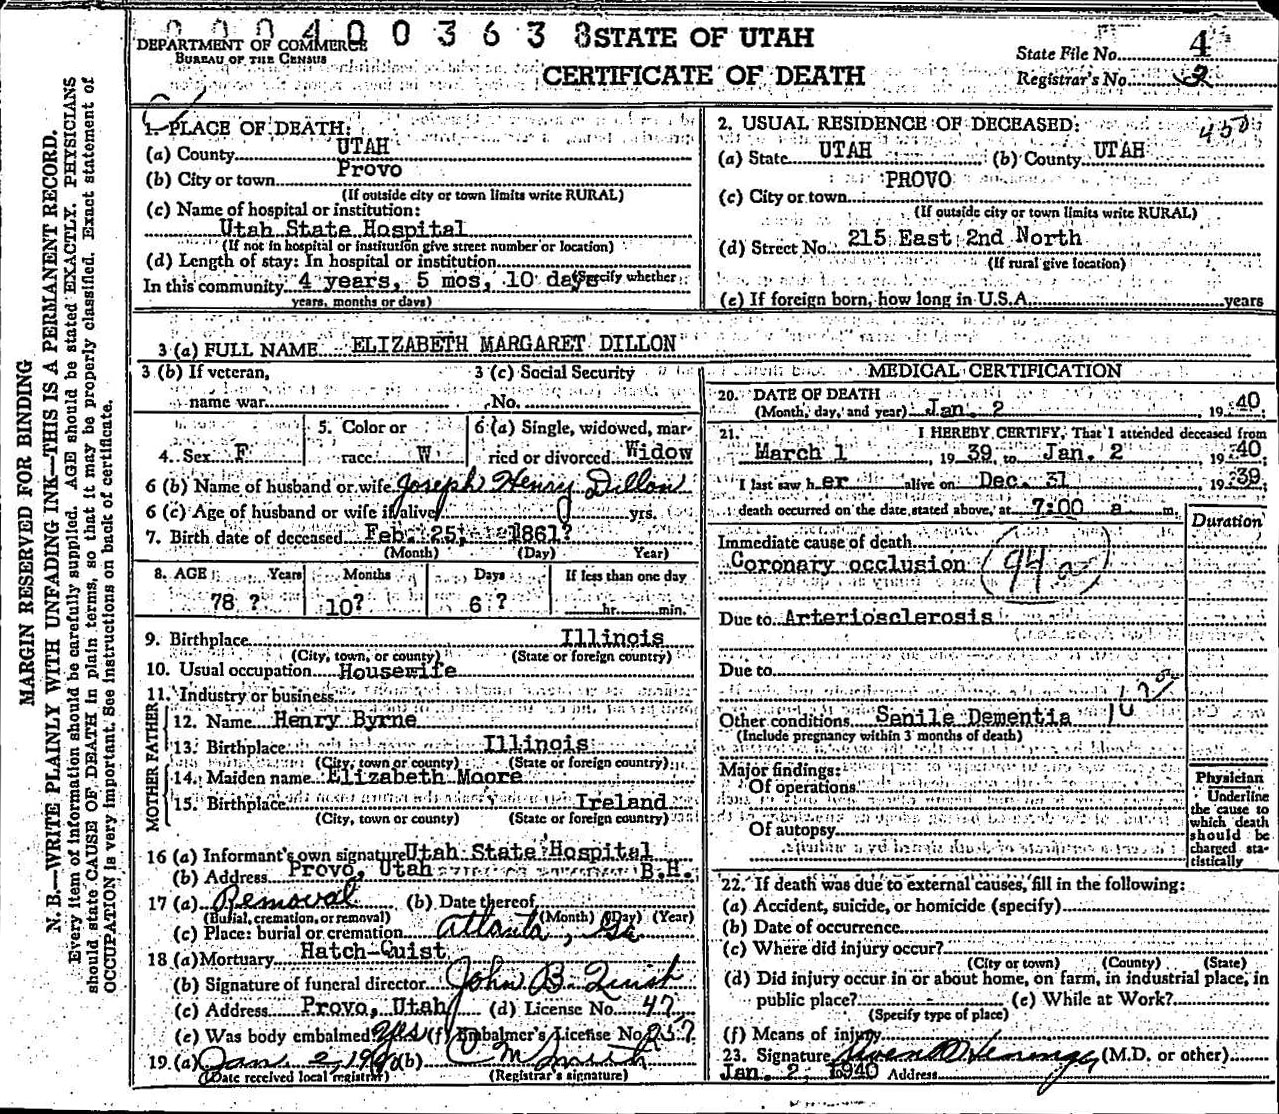 0 0 0 4 0 0 3 6 3 8 STATE OF UTAH
DEPARTMENT OF COMMERCE
BUREAU OF THE CENSUS
CERTIFICATE OF DEATH
State File No. 4
Registrar's No. 2
MARGIN RESERVED FOR BINDING
N. B.—WRITE PLAINLY WITH UNFADING INK—THIS IS A PERMANENT RECORD.
Every item of information should be carefully supplied. AGE should be stated EXACTLY. PHYSICIANS
should state CAUSE OF DEATH in plain terms, so that it may be properly classified. Exact statement of
OCCUPATION is very important. See instructions on back of certificate.
1. PLACE OF DEATH:
(a) County UTAH
(b) City or town Provo
(If outside city or town limits write RURAL)
(c) Name of hospital or institution:
Utah State Hospital
(If not in hospital or institution give street number or location)
(d) Length of stay: In hospital or institution
(Specify whether
In this community 4 years, 5 mos, 10 days
years, months or days)
2. USUAL RESIDENCE OF DECEASED: 450
(a) State UTAH (b) County UTAH
(c) City or town PROVO
(If outside city or town limits write RURAL)
(d) Street No. 215 East 2nd North
(If rural give location)
(e) If foreign born, how long in U.S.A. years
3 (a) FULL NAME ELIZABETH MARGARET DILLON
3 (b) If veteran, 3 (c) Social Security
name war No.
4. Sex F 5. Color or race W 6 (a) Single, widowed, married or divorced Widow
6 (b) Name of husband or wife Joseph Henry Dillon
6 (c) Age of husband or wife if alive yrs.
7. Birth date of deceased Feb. 25, 1861?
(Month) (Day) Year)
8. AGE Years Months Days If less than one day
78 ? 10? 6 ? hr. min.
9. Birthplace Illinois
(City, town, or county) (State or foreign country)
10. Usual occupation Housewife
11. Industry or business
FATHER
12. Name Henry Byrne
13. Birthplace Illinois
(City, town or county) (State or foreign country)
MOTHER
14. Maiden name Elizabeth Moore
15. Birthplace Ireland
(City, town, or county) (State or foreign country)
16 (a) Informant's own signature Utah State Hospital
(b) Address Provo, Utah B.H.
17 (a) Removal (b) Date thereof
(Burial, cremation, or removal) (Month) (Day) (Year)
(c) Place: burial or cremation Atlanta, Ga
18 (a) Mortuary Hatch-Quist
(b) Signature of funeral director John B. Quist
(c) Address Provo, Utah (d) License No. 47
(e) Was body embalmed? Yes (f) Embalmer's License No. 257
19 (a) Jan 2, 1940 (b)
(Date received local registrar) (Registrar's signature)
MEDICAL CERTIFICATION
20. DATE OF DEATH
(Month, day, and year) Jan. 2 1940;
21. I HEREBY CERTIFY, That I attended deceased from
March 1 1939, to Jan. 2 1940;
I last saw her alive on Dec. 31 1939;
death occurred on the date stated above, at 7:00 a m.
Duration
Immediate cause of death
Coronary occlusion 94 a
Due to Arteriosclerosis
Due to
Other conditions Senile Dementia
(Include pregnancy within 3 months of death)
Major findings:
Of operations
Of autopsy
Physician
Underline
the cause to
which death
should be
charged sta-
tistically
22. If death was due to external causes, fill in the following:
(a) Accident, suicide, or homicide (specify)
(b) Date of occurrence
(c) Where did injury occur?
(City or town) (County) (State)
(d) Did injury occur in or about home, on farm, in industrial place, in
public place? (e) While at Work?
(Specify type of place)
(f) Means of injury
23. Signature (M.D. or other)
Jan. 2, 1940 Address